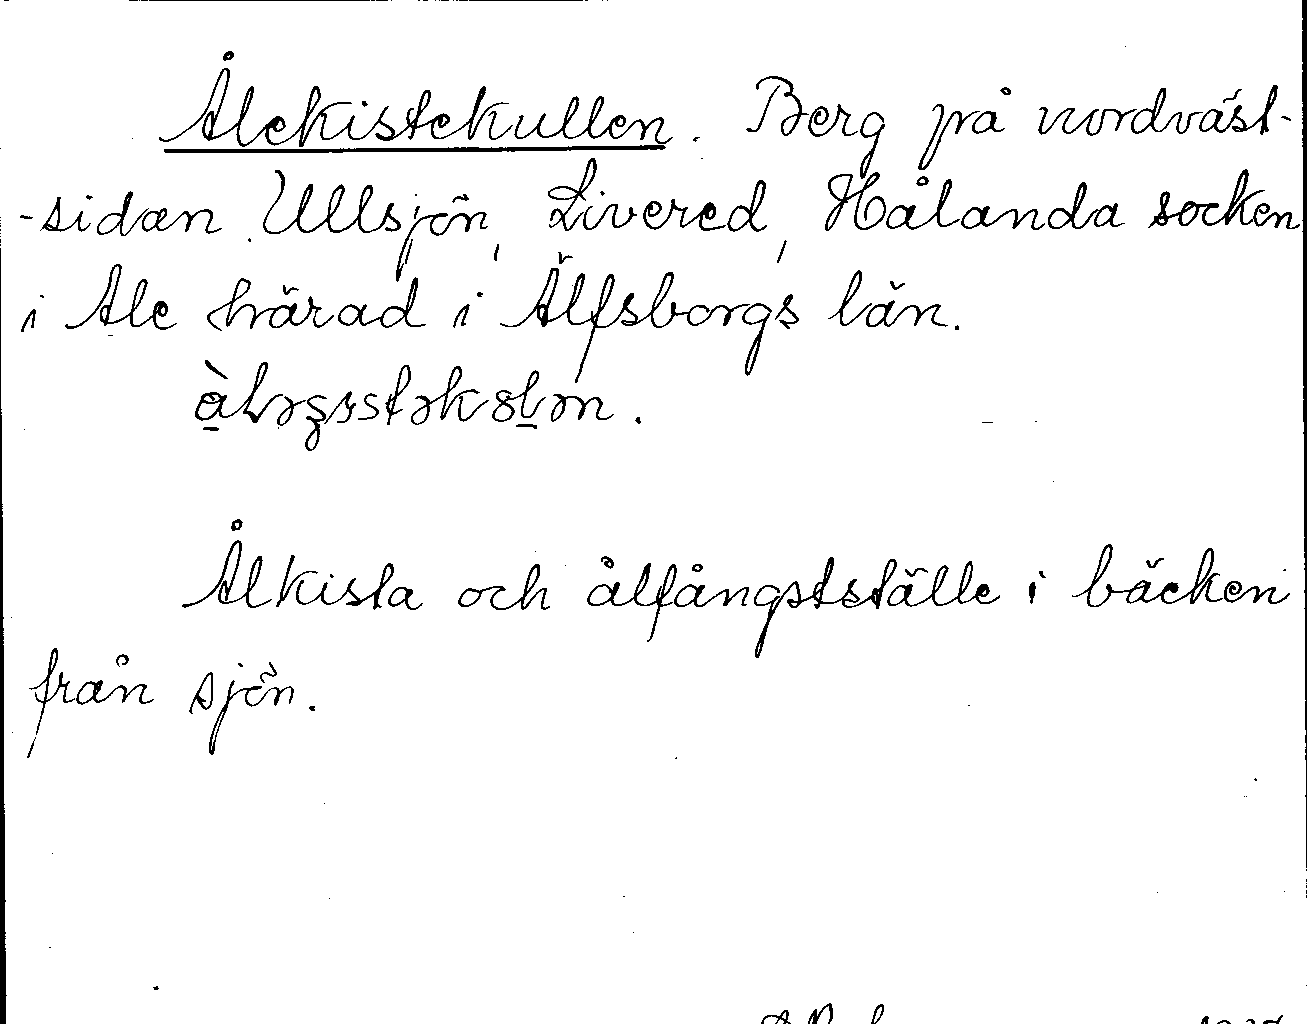 Ålekistekullen. Berg på nordväst-
-sidan Ullsjön, Livered, Hålanda socken
i Ale härad i Älfsborgs län.
Ålkista och ålfångstställe i bäcken
från sjön.